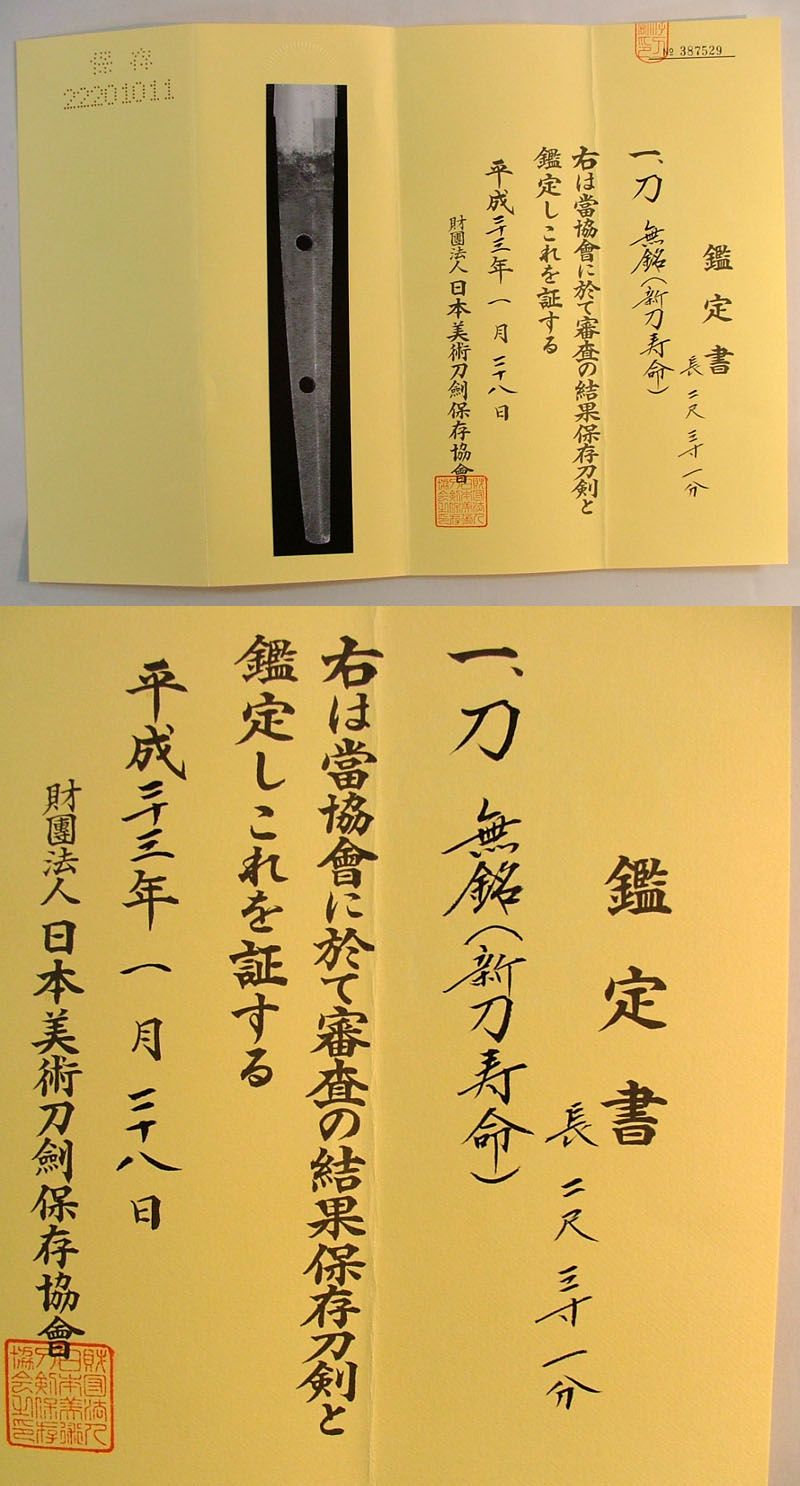 保存
22201011
№ 387529
鑑定書
長二尺三寸一分
一、刀 無銘（新刀寿命）
右は當協會に於て審査の結果保存刀剣と
鑑定しこれを証する
平成二十三年一月二十八日
財團法人日本美術刀劍保存協會
財団法人
日本美術
刀剣保存
協会之印
鑑定書
長二尺三寸一分
一、刀 無銘（新刀寿命）
右は當協會に於て審査の結果保存刀剣と
鑑定しこれを証する
平成二十三年一月二十八日
財團法人日本美術刀劍保存協會
財団法人
日本美術
刀剣保存
協会之印